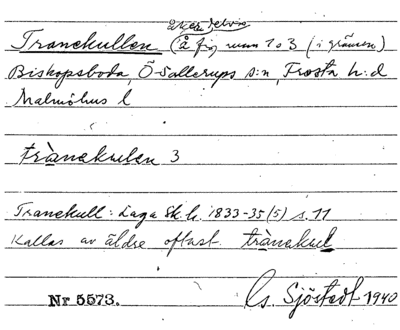 Tranekullen (å fig num 1 o 3 (i gränsen)
Biskopsboda, Ö-Sallerups s:n, Frosta h:d
Malmöhus l
trànekulen 3
Tranekull: Laga Sk h. 1833-35 (5) s. 11
Kallas av äldre oftast trànekul
Nr 5573. Gs. Sjöstedt 1940